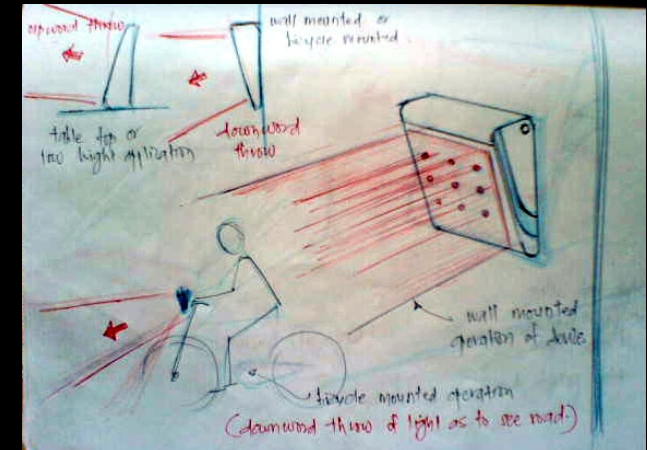 upword throw
wall mounted or
bicycle mounted.
table top or
low hight application
downword
throw
wall mounted
operation of device
bicycle mounted operation
(downword throw of light as to see road.)